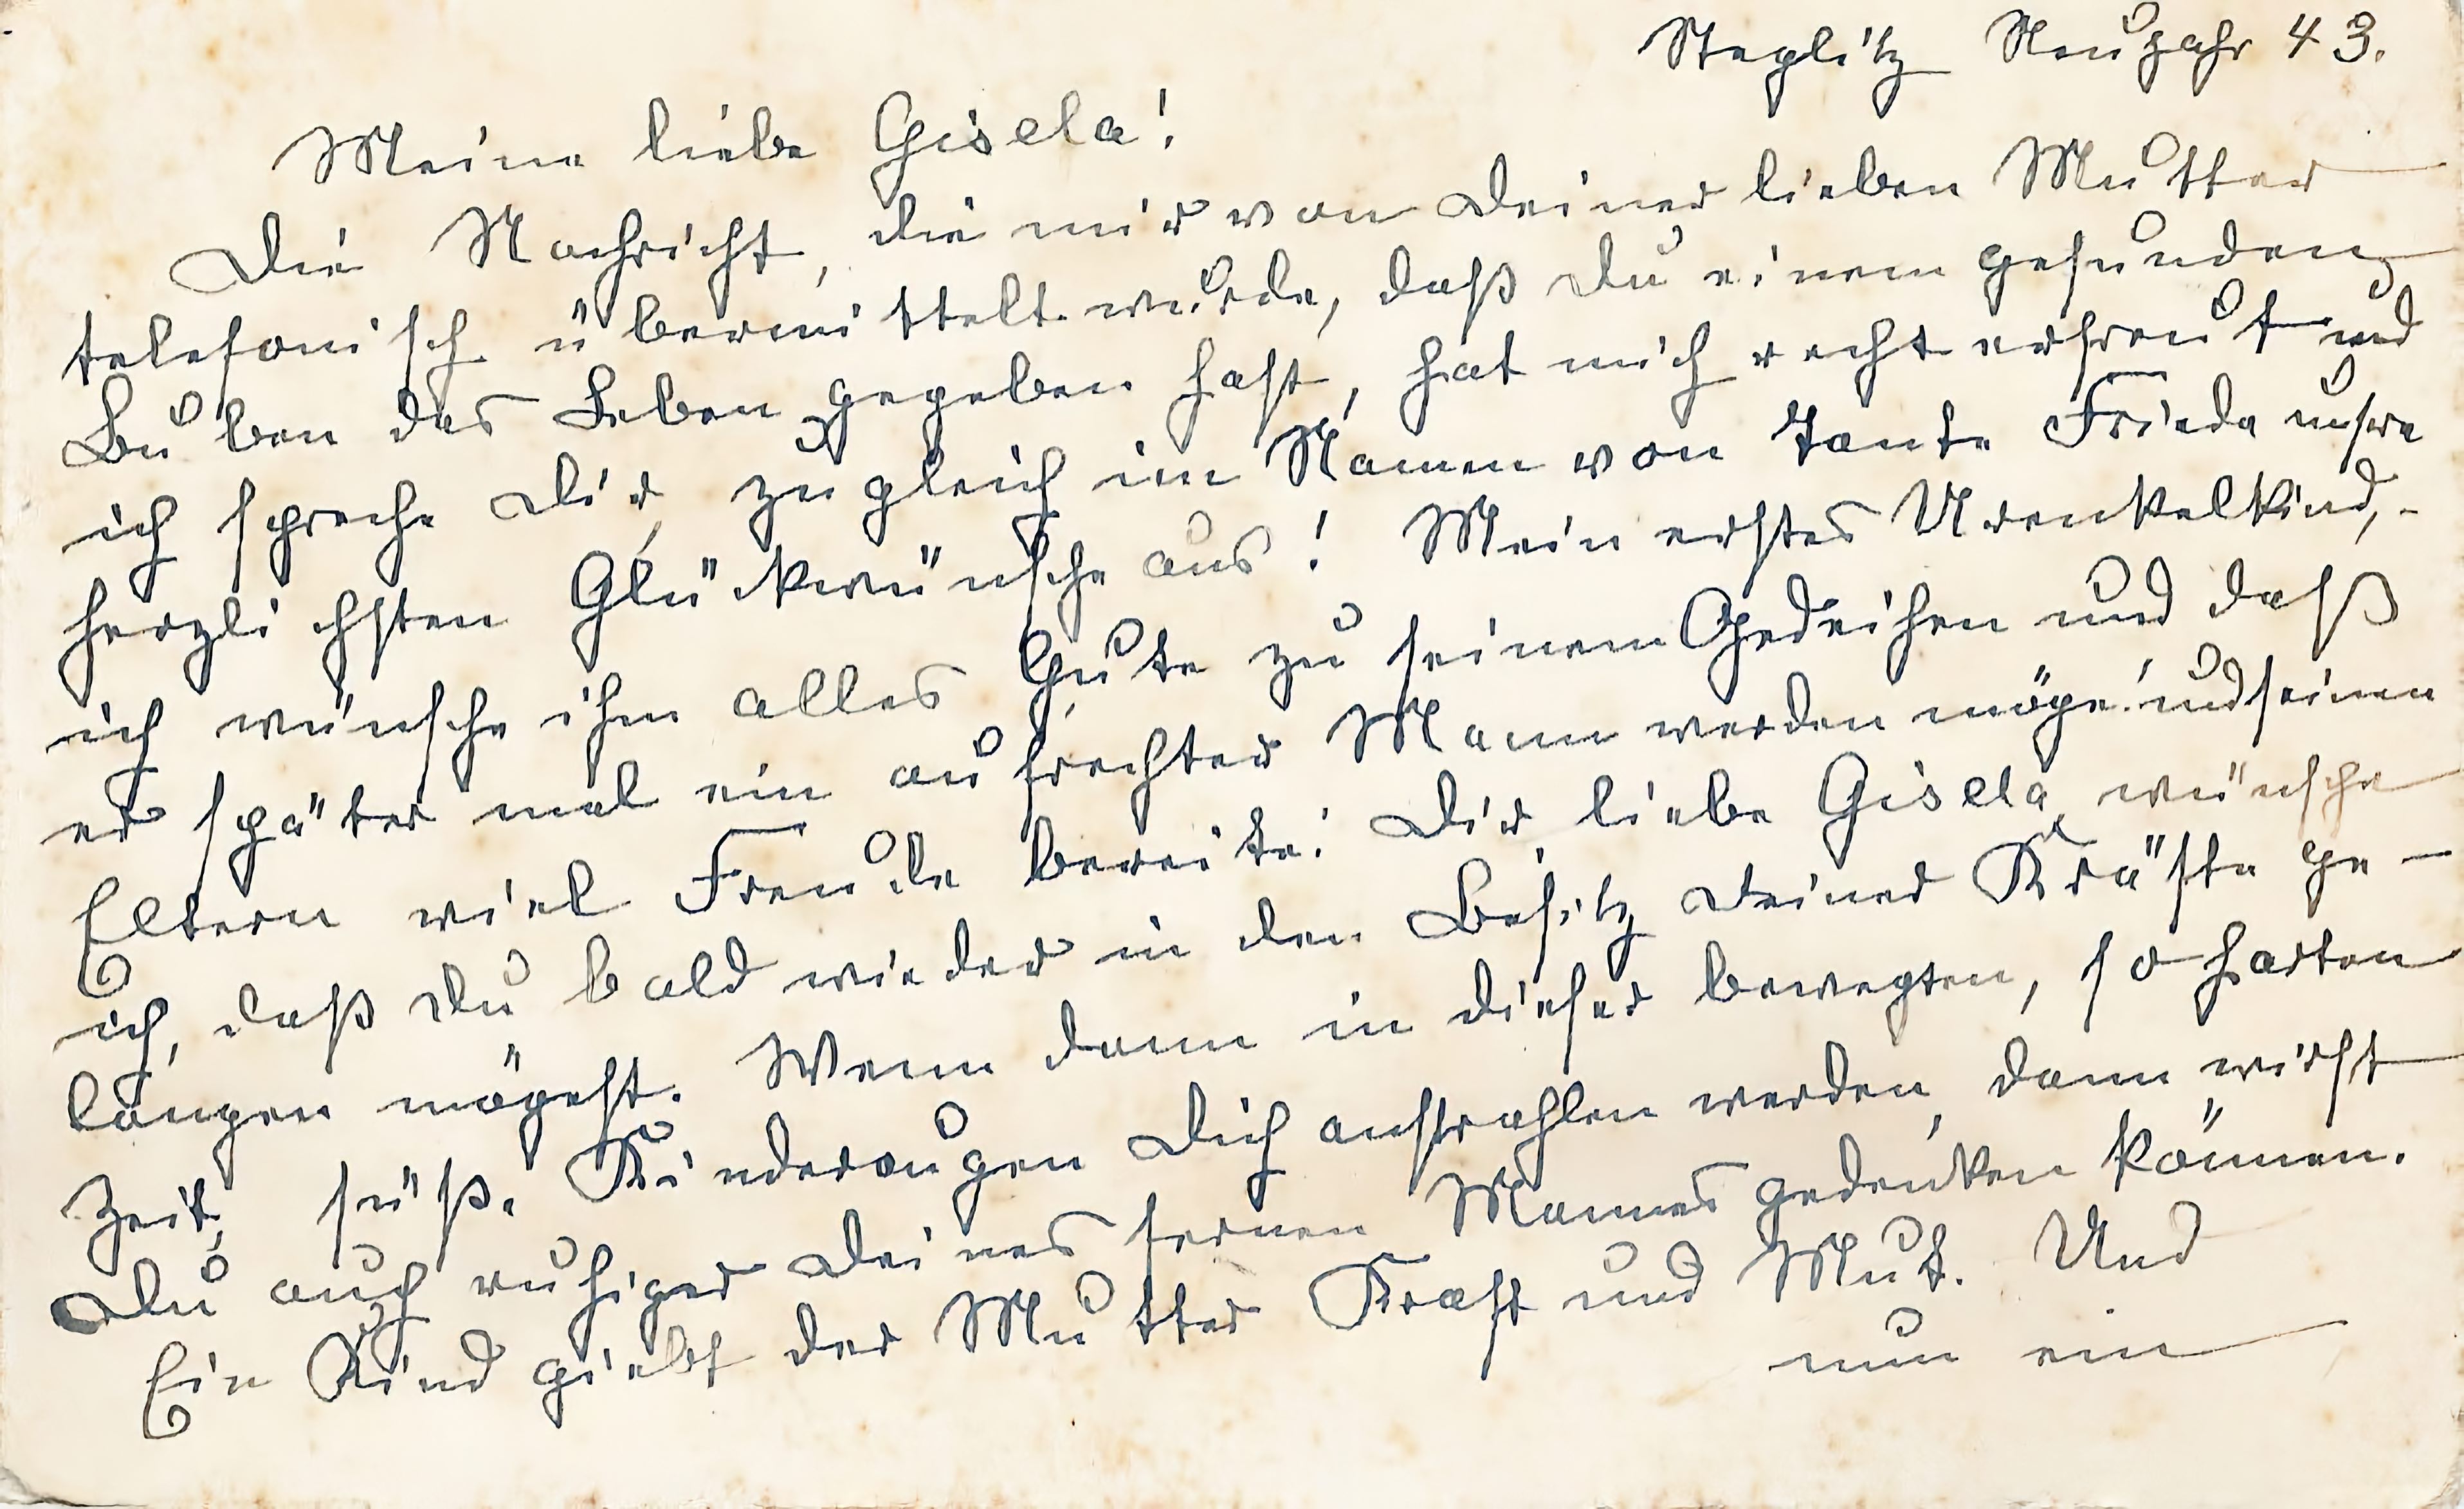 Steglitz Neujahr 43.
Meine liebe Gisela!
Die Nachricht, die mir von Deiner lieben Mutter
telefonisch übermittelt wurde, daß Du einem gesunden
Buben das Leben gegeben hast, hat mich recht erfreut und
ich spreche Dir, zugleich im Namen von Tante Frieda unsre
herzlichsten Glückwünsche aus! Mein erstes Urenkelkind,-
ich wünsche ihm alles Gute zu seinem Gedeihen und daß
er später mal ein aufrechter Mann werden möge und seinen
Eltern viel Freude bereite! Dir, liebe Gisela wünsche
ich, daß Du bald wieder in den Besitz Deiner Kräfte ge-
langen mögest. Wenn dann in dieser bewegten, so harten
Zeit, süße Kinderaugen Dich anstrahlen werden, dann wirst
Du auch ruhiger Deines fernen Mannes gedenken können.
Ein Kind giebt der Mutter Kraft und Mut. Und
nun ein